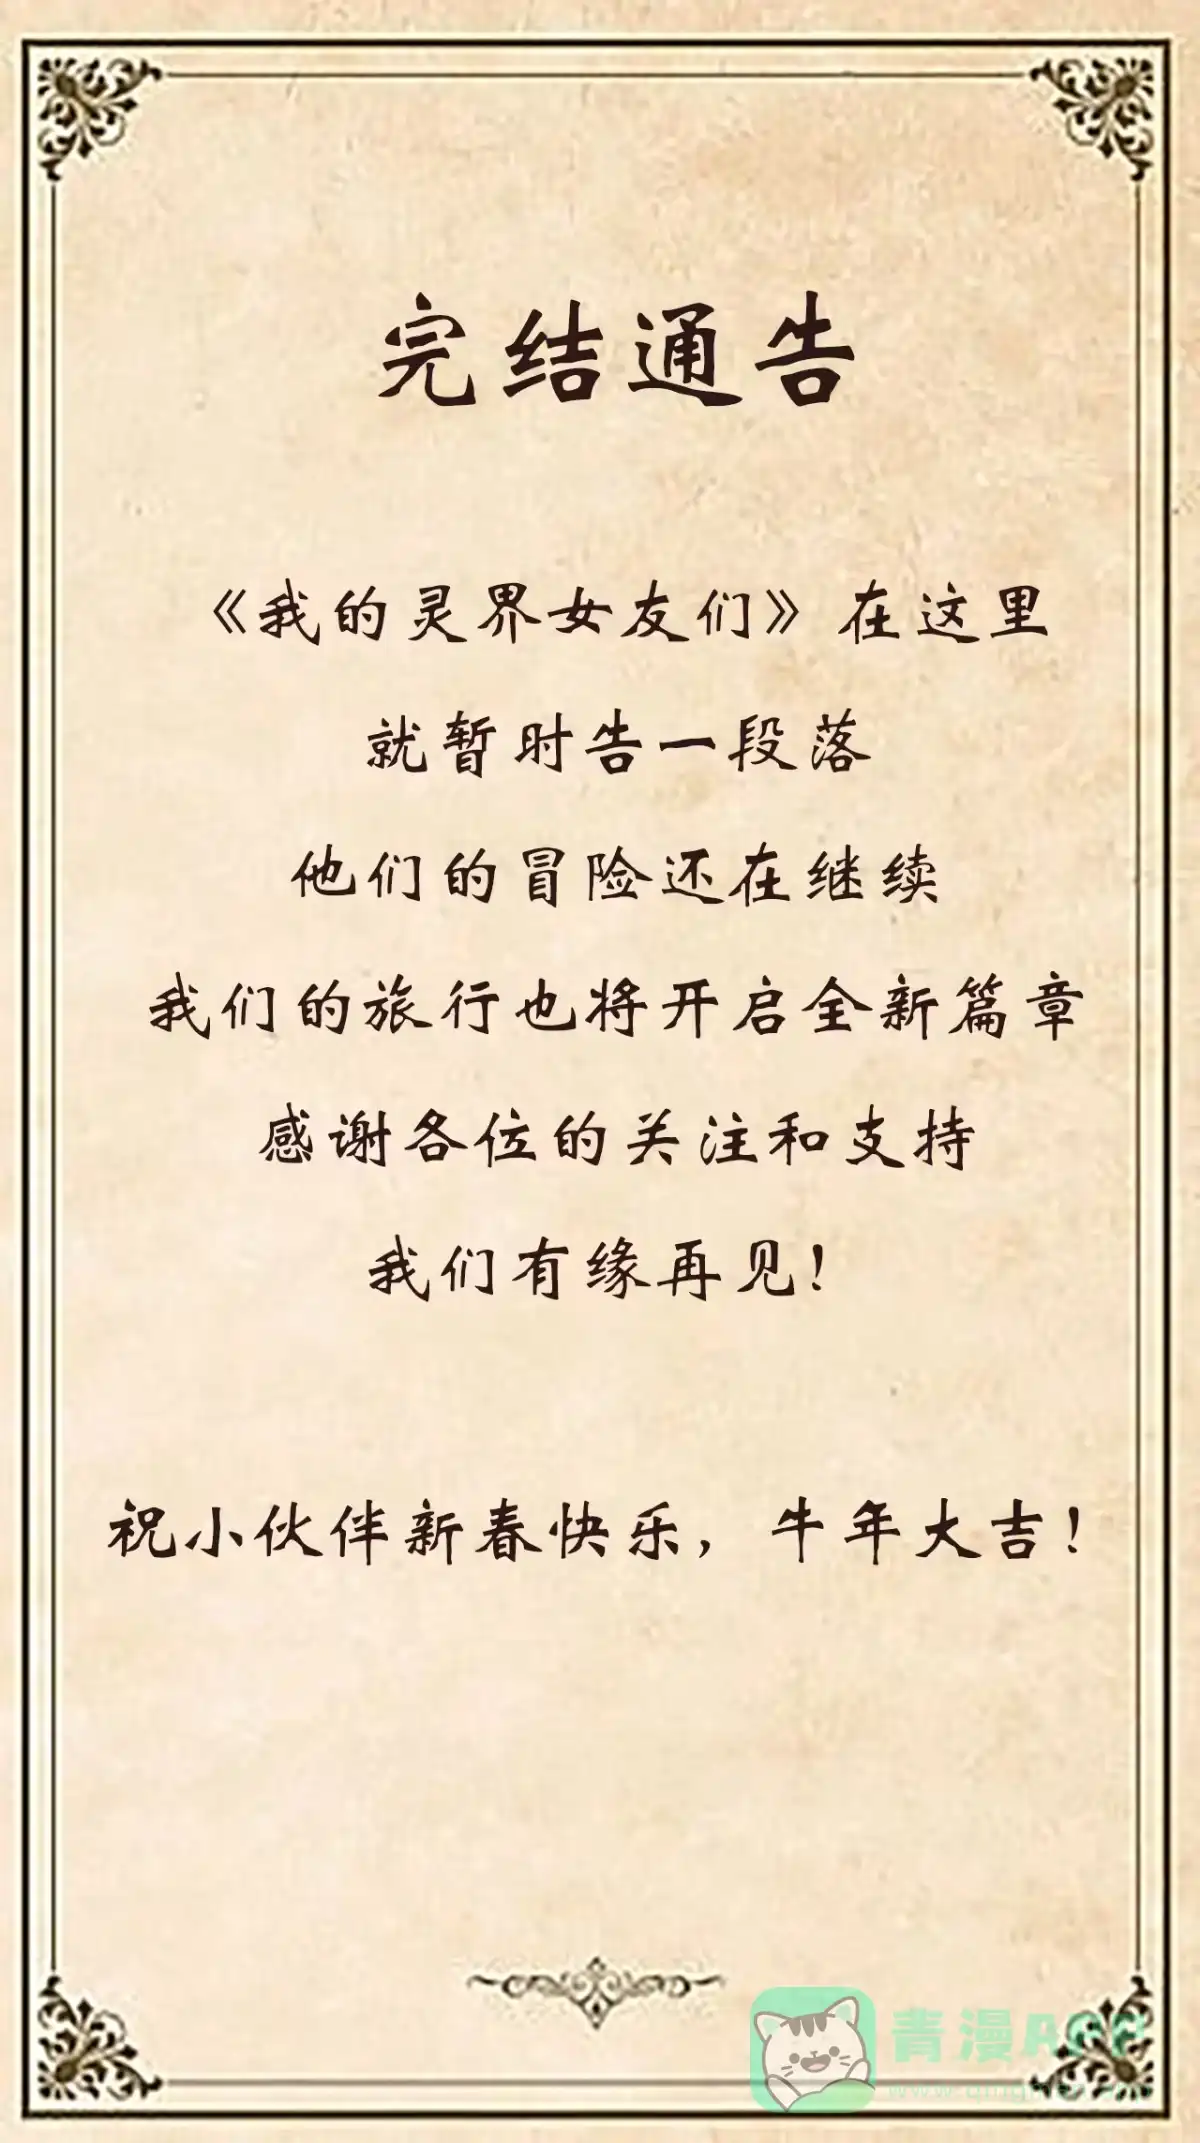 完结通告
《我的灵界女友们》在这里
就暂时告一段落
他们的冒险还在继续
我们的旅行也将开启全新篇章
感谢各位的关注和支持
我们有缘再见！
祝小伙伴新春快乐，牛年大吉！
青漫APP